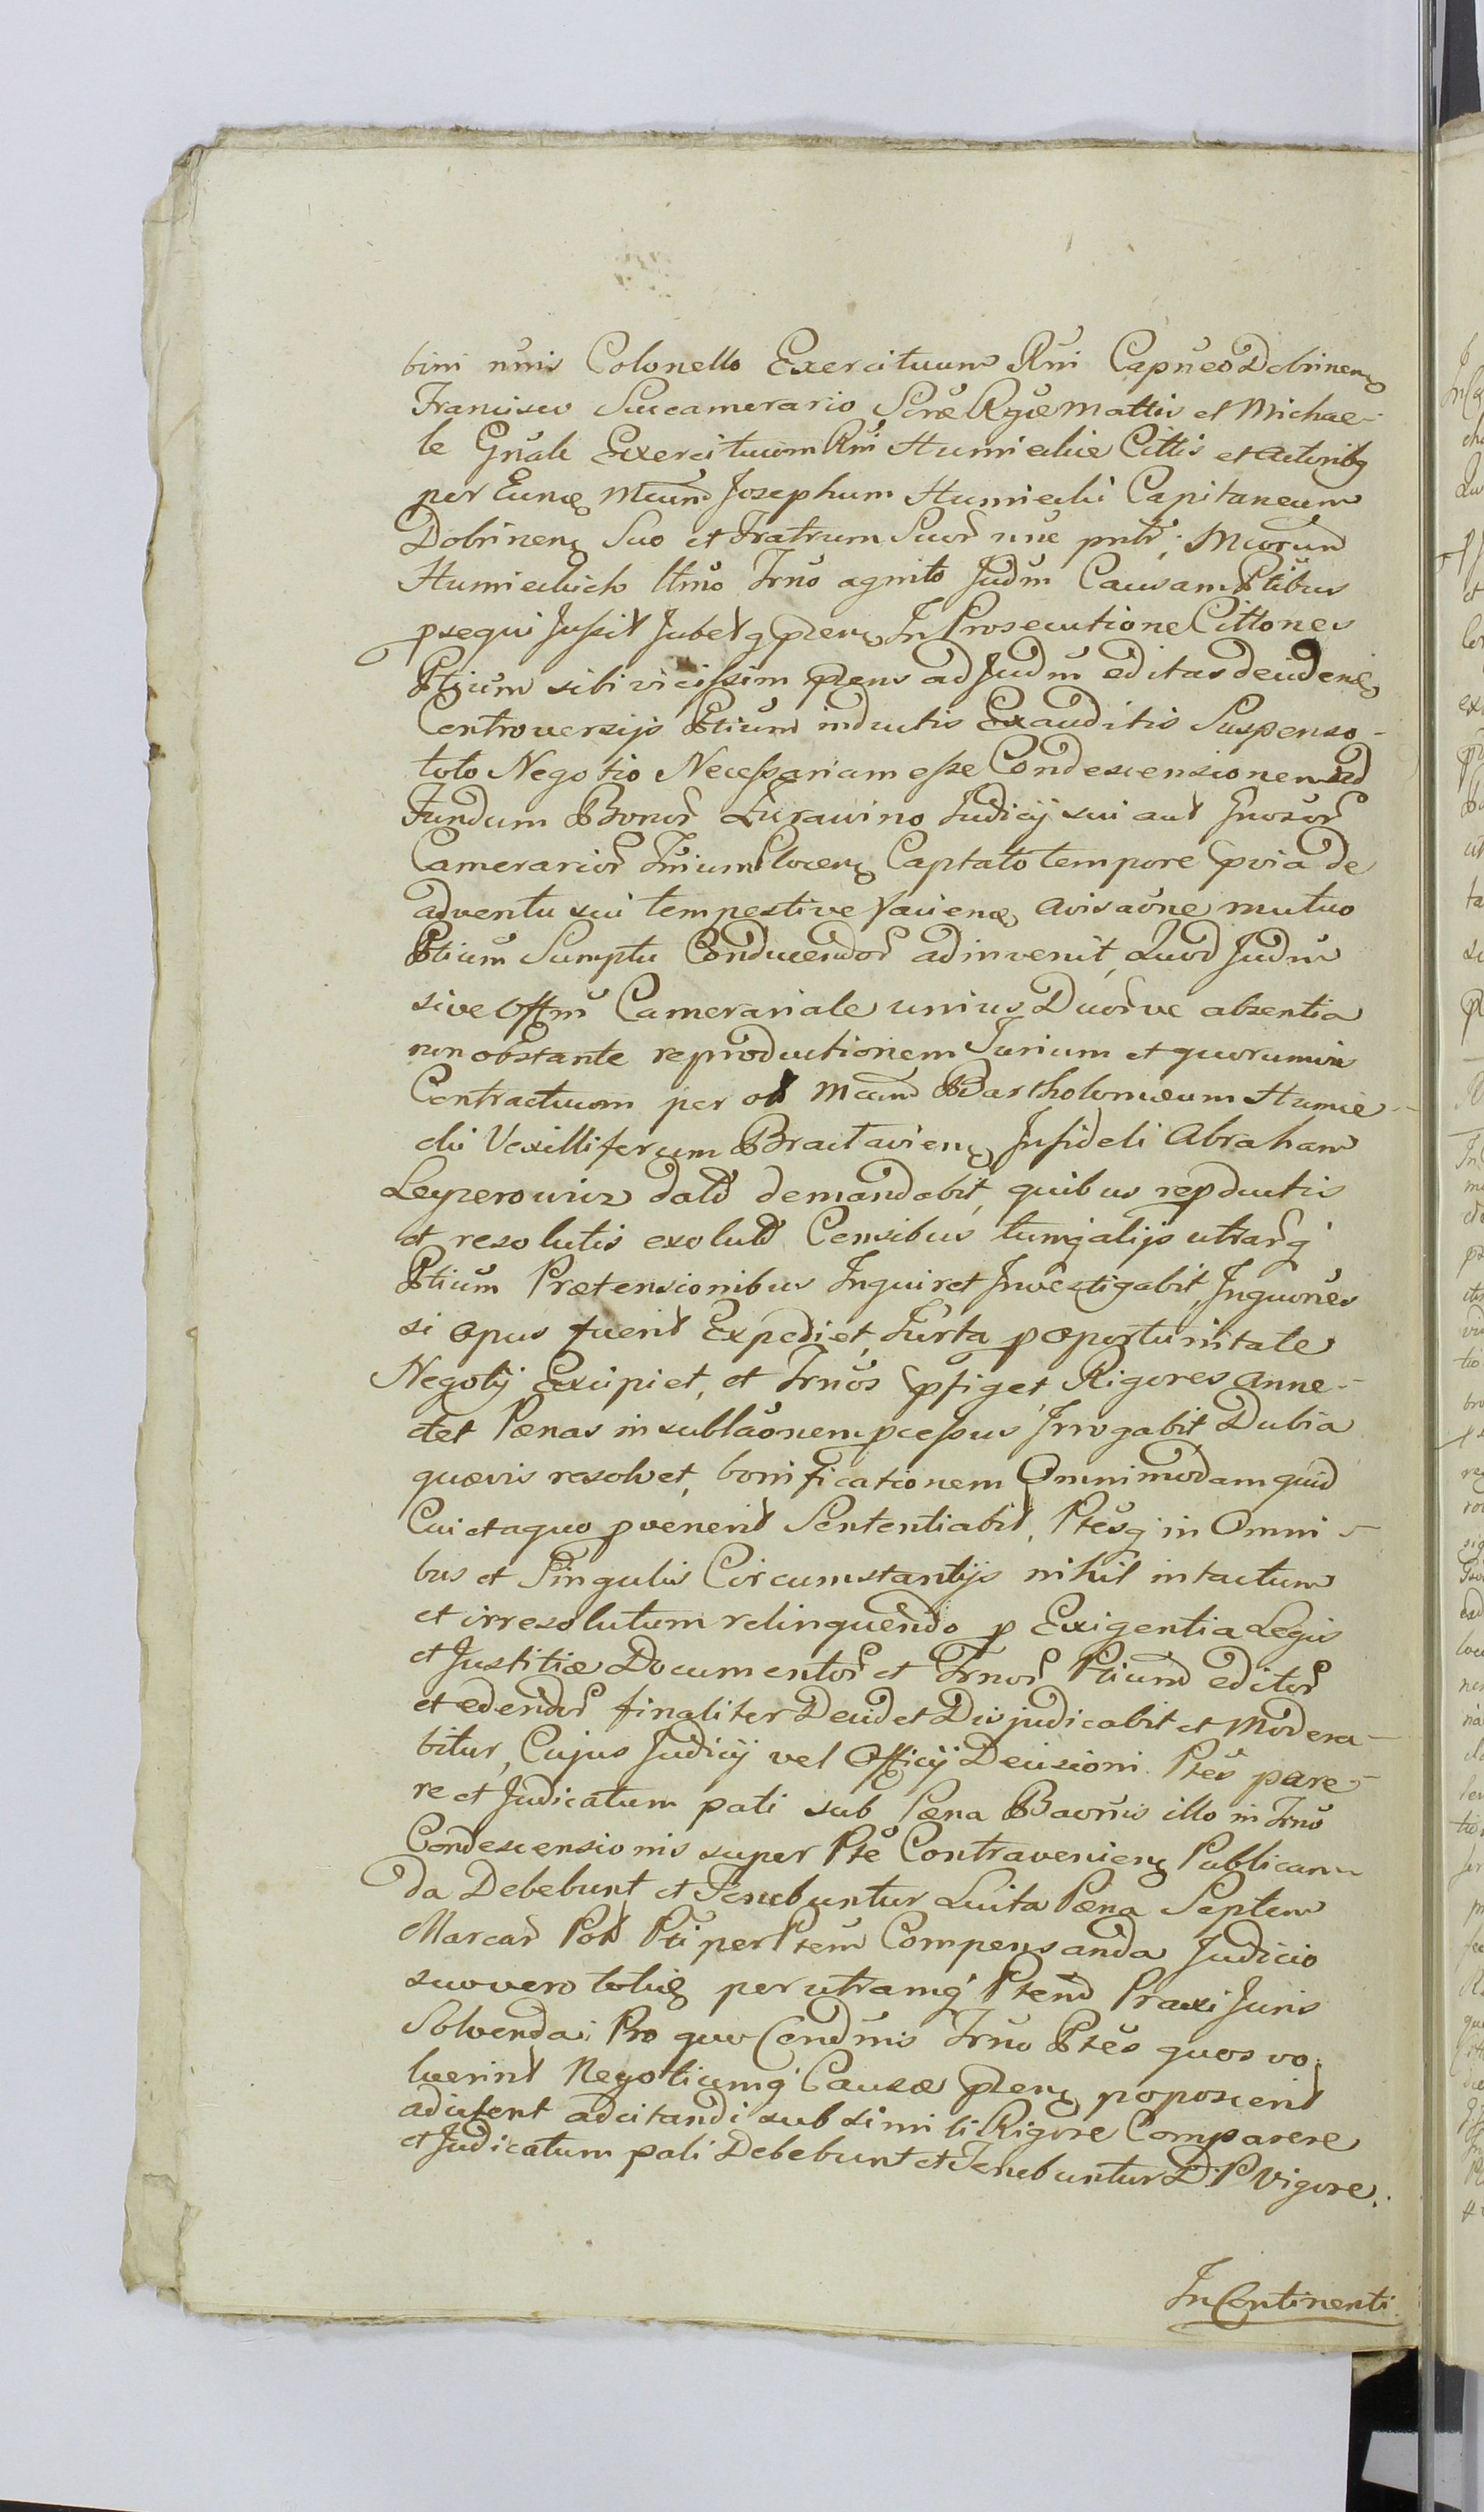 bini nunis Colonello Exercituum Rni Capneo Dobrinens
Francisco Succamerario Scræ Rgiæ Mattis et Michae-
le Gnali Exercituum Rni Humieckie Cittis et Actoribq
per Eunq Mcum Josephum Humiecki Capitaneum
Dobrinens Suo et Fratrum Suor nne pntr; Mcorum
Humieckich Ttmo Trno agnito Judm Causam Ptibus
psequi Jussit Jubetq pzens In Prosecutione Cittones
Ptium sibi vicissim pzens ad Judm editas decidens
Controversijs Ptium inductis Exauditis Suspenso-
toto Negotio Necessariam esse Condescensionem ad
Fundum Bonor Zurawino Judicij sui aut Gnosor
Camerarior Trium locens Captato tempore pvia de
adventu sui tempestive faciens avisaone mutuo
Ptium Sumptu Conducendor adinvenit, Quod Judm
sive Offm Camerariale unius Duorve absentia
non obstante reproductionem Jurium et quorumvis
Contractuum per ol Mcum Bartholomæum Humie-
cki Vexilliferum Braclaviens Infideli Abraham
Leyzerowicz dator demandabit, quibus repductis
et resolutis exolutis Censibus tumq alijs utrarq
Ptium Prætensionibus Inquiret Investigabit, Inquones
si opus fuerit Expediet, Jurta p oportunitate
Negotij Excipiet, et Trnos pfiget, Rigores anne-
ctet Pænas in sublaonem pcessus Irrogabit Dubia
quævis resolvet, bonificationem Omnimodam quid
Cui et a quo pvenerit Sententiabit, Ptesq in Omni-
bus et Singulis Circumstantijs nihil intactum
et irresolutum relinquendo p Exigentia Legis
et Justitiæ Documentor et Trnor Ptium editor
et edendor finaliter Decidet Disjudicabit et Modera-
bitur, Cujus Judicij vel Officij Decisioni Ptes pare-
re et Judicatum pati sub Pæna Baonis illo in Trno
Condescensionis super Pte Contraveniens Publican-
da Debebunt et Tenebuntur Luita Pæna Septem
Marcar Pol Pti per Ptem Compensanda Judicio
suo vero toties per utramq Ptem Praxi Juris
Solvenda; Pro quo Condnis Trno Ptes quos vo-
luerint Negotiumq Causæ pzens poposcerit
adcitent adcitandi sub simili Rigore Comparere
et Judicatum pati Debebunt et Tenebuntur D: P Vigore.
In Continenti